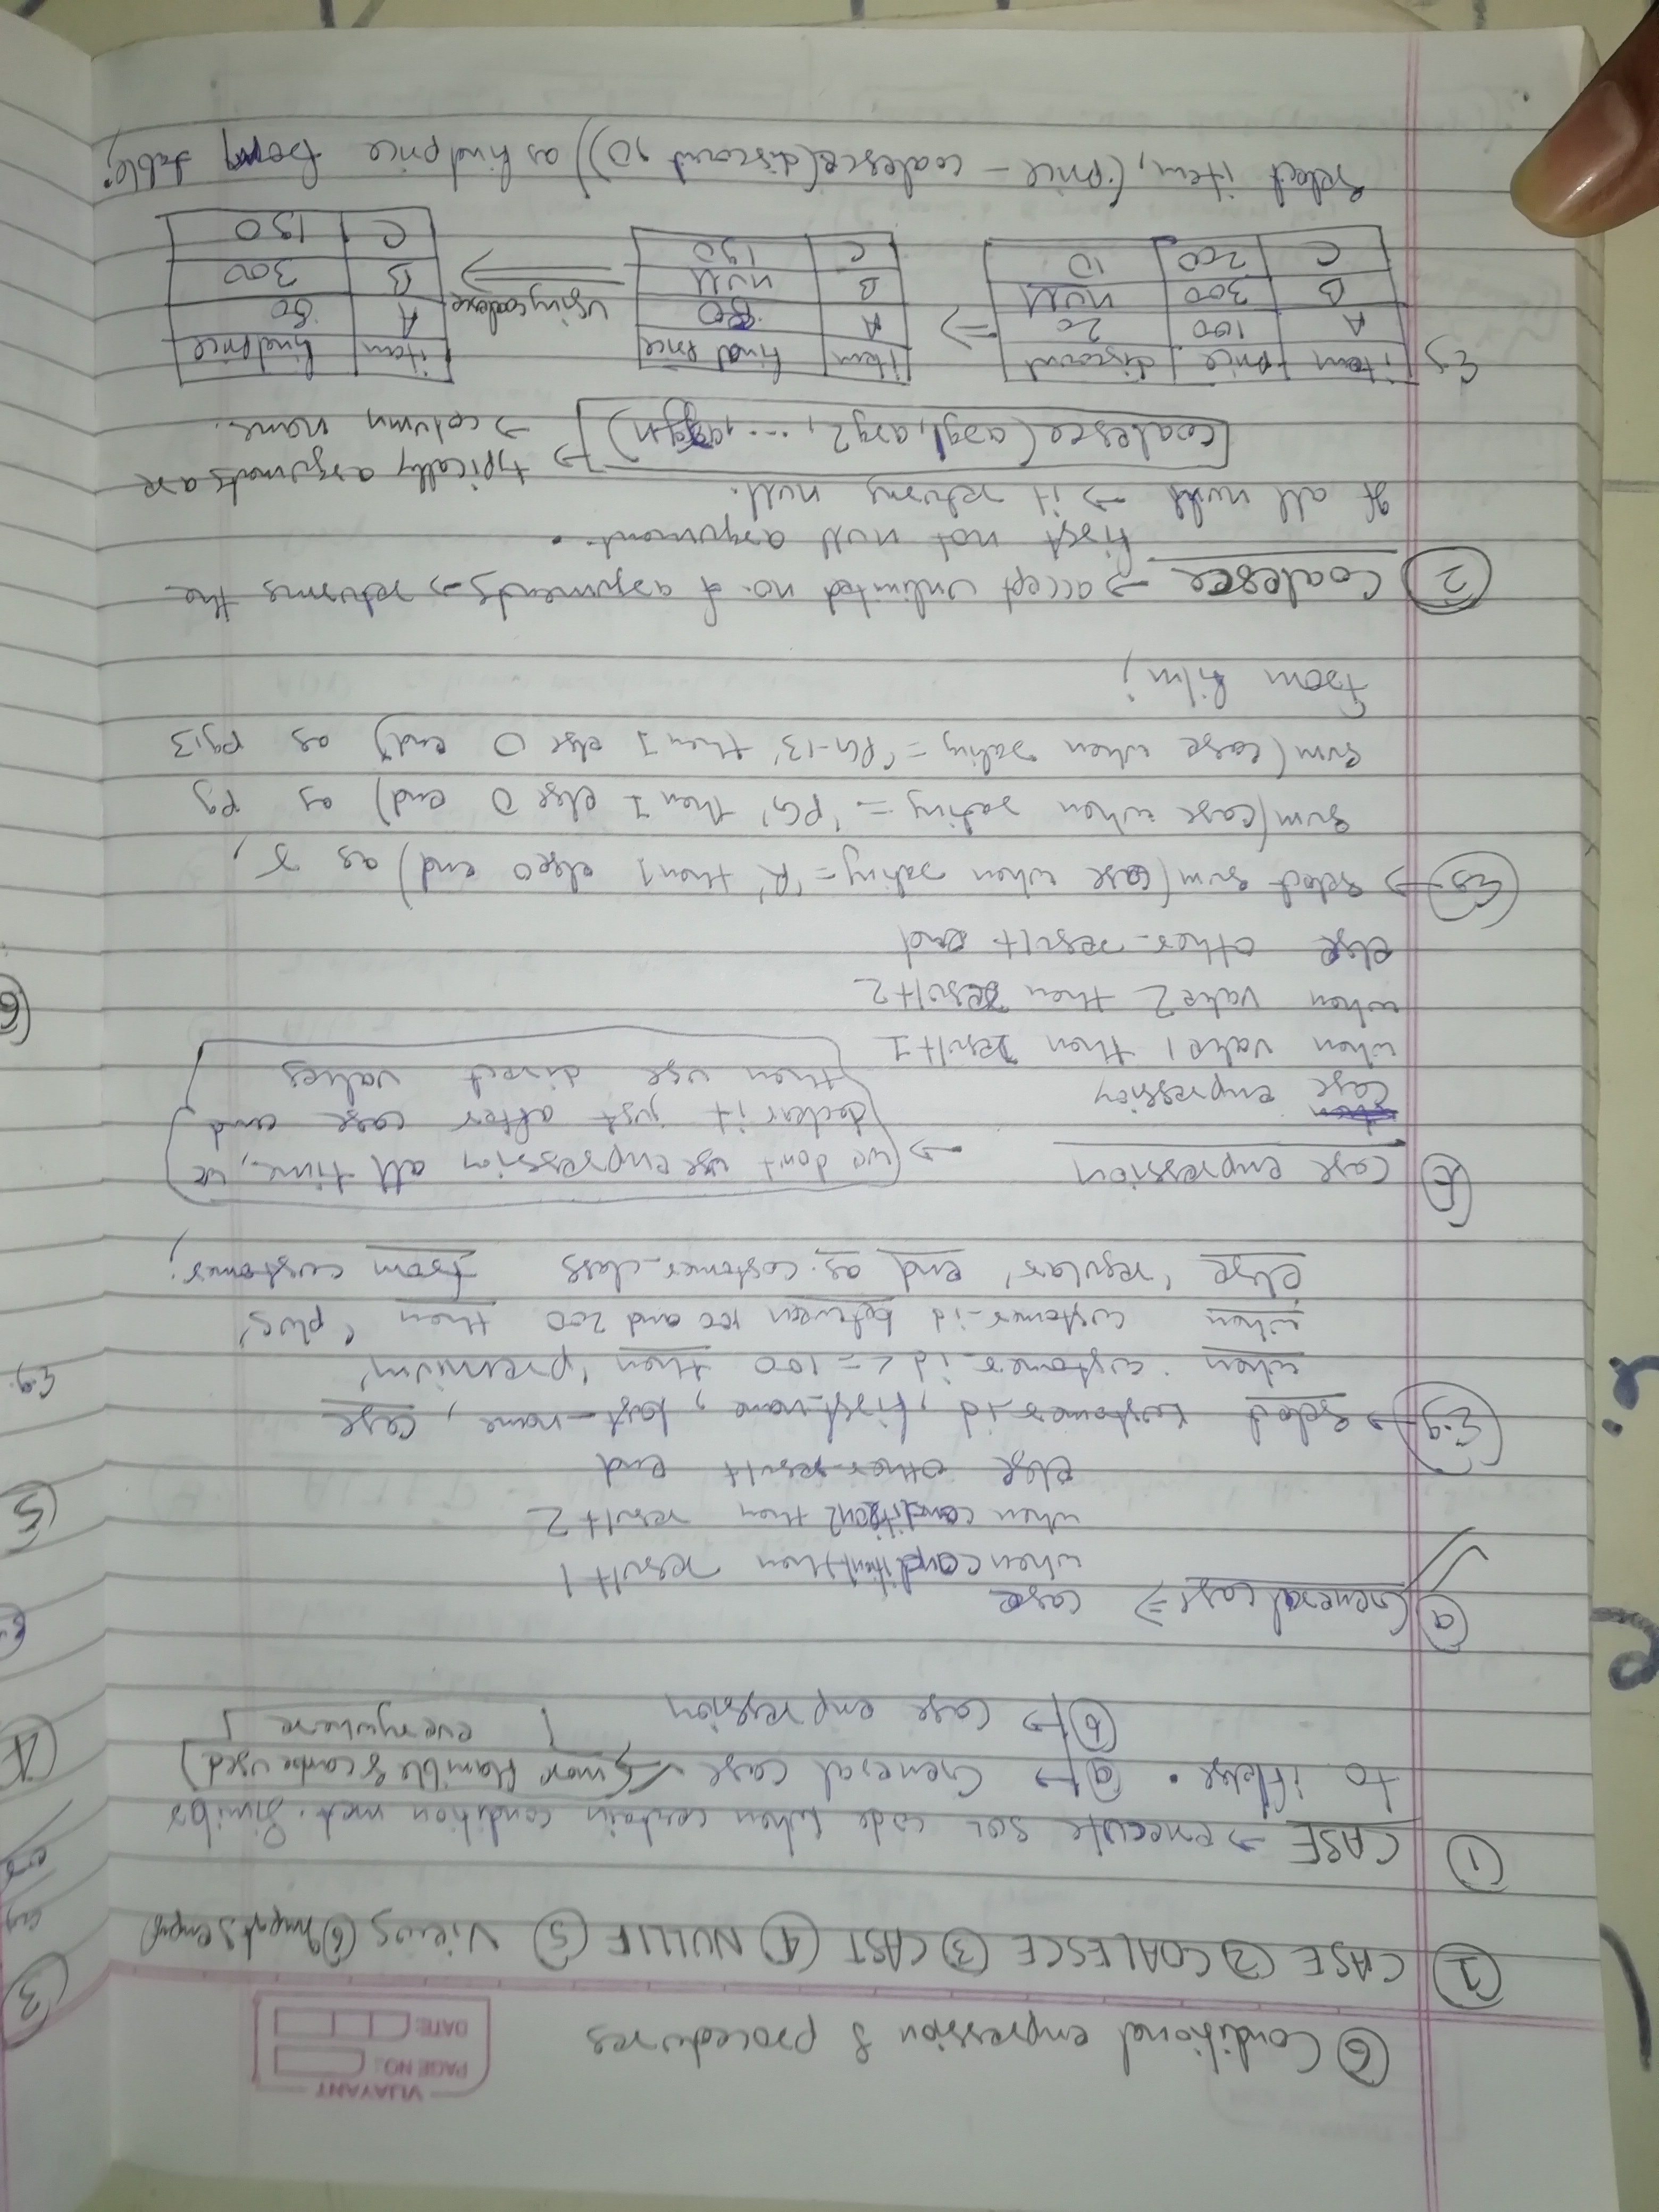 VIJAYANT
PAGE NO.:
DATE:
⑥ Conditional expression & procedures
① CASE ② COALESCE ③ CAST ④ NULLIF ⑤ Views ⑥ Import & export
① CASE → execute SQL code when certain condition met. Similar
to if/else. ⓐ → General case ✓ (more flexible & can be used
everywhere)
ⓑ → case expression
ⓐ General case ⇒ case
when condition1 then result 1
when condition2 then result 2
else other_result end
E.g → select customer_id, first_name, last_name, case
when customer_id <= 100 then 'premium'
when customer_id between 100 and 200 then 'plus'
else 'regular' end as customer_class from customer;
ⓑ case expression → we don't use expression all time, we
declare it just after case and
then use direct values
case expression
when value1 then result 1
when value2 then result 2
else other_result end
Eg → select sum(case when rating = 'R' then 1 else 0 end) as r,
sum(case when rating = 'PG' then 1 else 0 end) as pg
sum(case when rating = 'PG-13' then 1 else 0 end) as pg13
from film;
② Coalesce → accept unlimited no. of arguments → returns the
first not null argument.
If all null → it returns null.
coalesce(arg1, arg2, ..., argn) → typically arguments are
→ column name.
Eg item price discount ⇒ item final price using coalesce item final price
A 100 20 A 80 A 80
B 300 null B null B 300
C 200 10 C 190 C 190
select item, (price - coalesce(discount, 0)) as finalprice from table;
3
4
5
E.g.
6